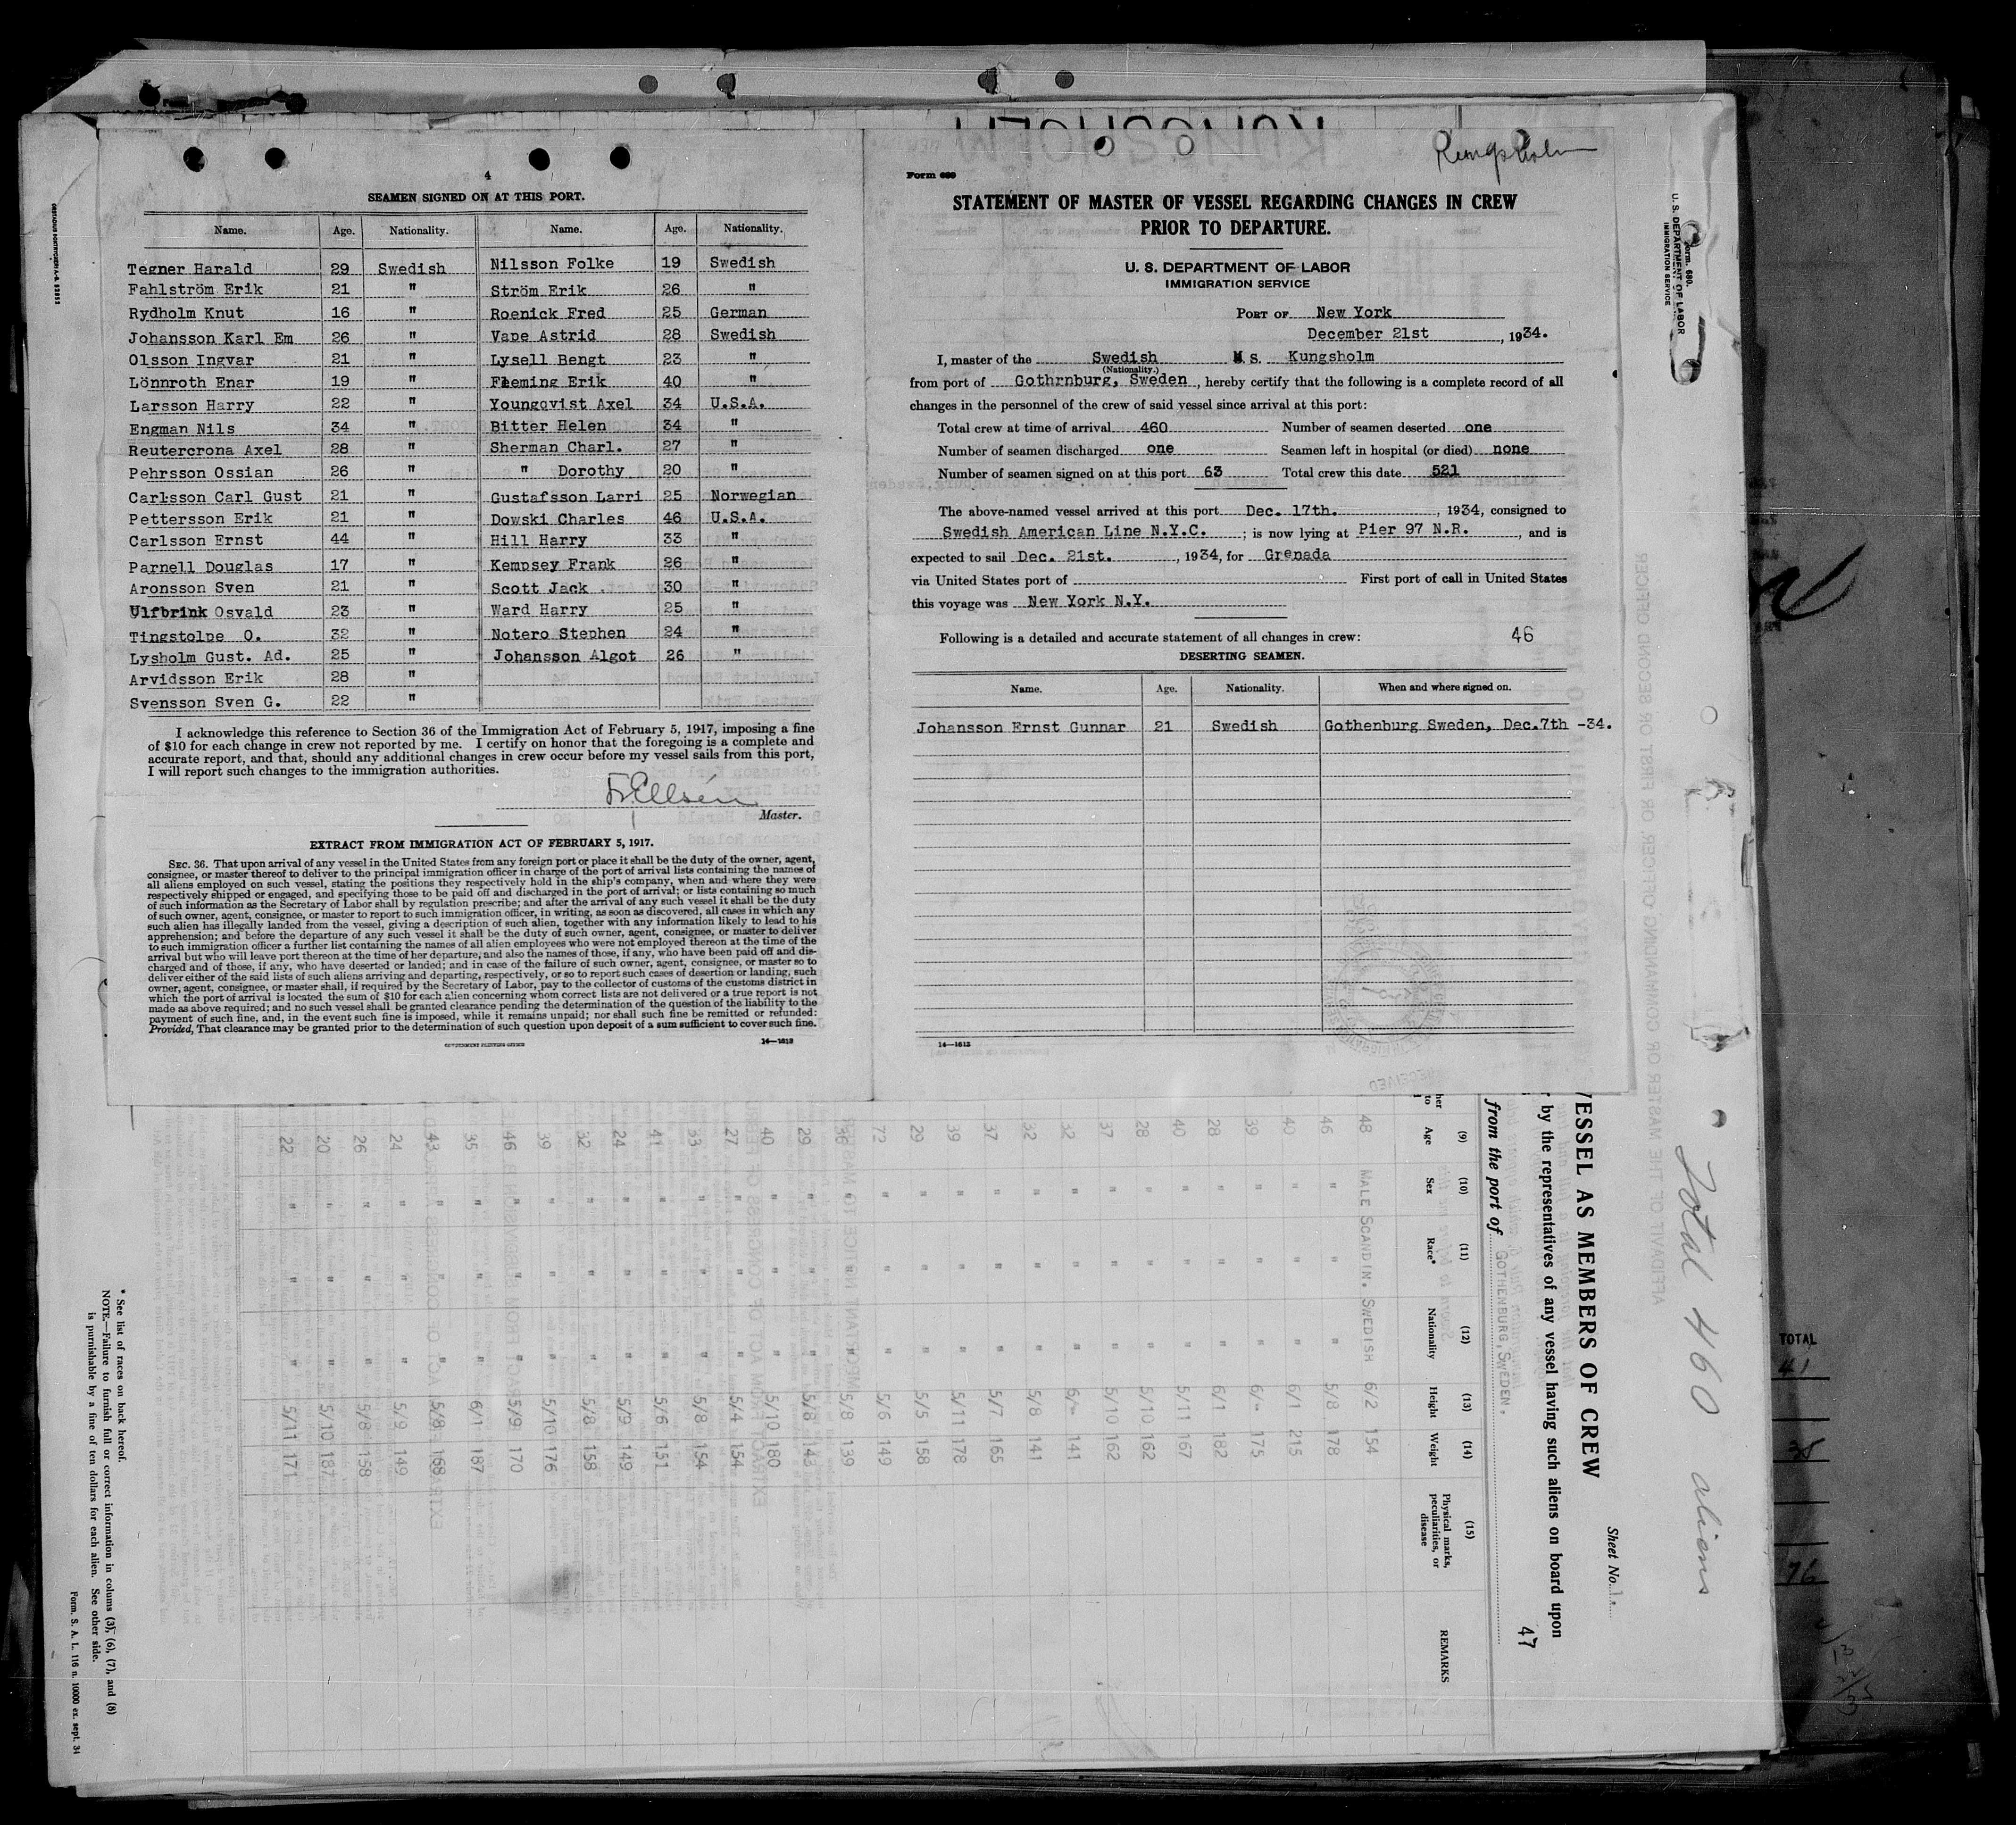 4
SEAMEN SIGNED ON AT THIS PORT.
Name. Age. Nationality. Name. Age. Nationality.
Tegner Harald 29 Swedish Nilsson Folke 19 Swedish
Fahlström Erik 21 " Ström Erik 26 "
Rydholm Knut 16 " Roenick Fred 25 German
Johansson Karl Em 26 " Vape Astrid 28 Swedish
Olsson Ingvar 21 " Lysell Bengt 23 "
Lönnroth Enar 19 " Fleming Erik 40 "
Larsson Harry 22 " Youngqvist Axel 34 U.S.A.
Engman Nils 34 " Bitter Helen 34 "
Reutercrona Axel 28 " Sherman Charl. 27 "
Pehrsson Ossian 26 " " Dorothy 20 "
Carlsson Carl Gust 21 " Gustafsson Larri 25 Norwegian
Pettersson Erik 21 " Dowski Charles 46 U.S.A.
Carlsson Ernst 44 " Hill Harry 33 "
Parnell Douglas 17 " Kempsey Frank 26 "
Aronsson Sven 21 " Scott Jack 30 "
Ulfbrink Osvald 23 " Ward Harry 25 "
Tingstolpe O. 32 " Notero Stephen 24 "
Lysholm Gust. Ad. 25 " Johansson Algot 26 "
Arvidsson Erik 28 "
Svensson Sven G. 22 "
I acknowledge this reference to Section 36 of the Immigration Act of February 5, 1917, imposing a fine
of $10 for each change in crew not reported by me. I certify on honor that the foregoing is a complete and
accurate report, and that, should any additional changes in crew occur before my vessel sails from this port,
I will report such changes to the immigration authorities.
Master.
EXTRACT FROM IMMIGRATION ACT OF FEBRUARY 5, 1917.
SEC. 36. That upon arrival of any vessel in the United States from any foreign port or place it shall be the duty of the owner, agent,
consignee, or master thereof to deliver to the principal immigration officer in charge of the port of arrival lists containing the names of
all aliens employed on such vessel, stating the positions they respectively hold in the ship's company, when and where they were
respectively shipped or engaged, and specifying those to be paid off and discharged in the port of arrival; or lists containing so much
of such information as the Secretary of Labor shall by regulation prescribe; and after the arrival of any such vessel it shall be the duty
of such owner, agent, consignee, or master to report to such immigration officer, in writing, as soon as discovered, all cases in which any
such alien has illegally landed from the vessel, giving a description of such alien, together with any information likely to lead to his
apprehension; and before the departure of any such vessel it shall be the duty of such owner, agent, consignee, or master to deliver
to such immigration officer a further list containing the names of all alien employees who were not employed thereon at the time of the
arrival but who will leave port thereon at the time of her departure, and also the names of those, if any, who have been paid off and dis-
charged and of those, if any, who have deserted or landed; and in case of the failure of such owner, agent, consignee, or master so to
deliver either of the said lists of such aliens arriving and departing, respectively, or so to report such cases of desertion or landing, such
owner, agent, consignee, or master shall, if required by the Secretary of Labor, pay to the collector of customs of the customs district in
which the port of arrival is located the sum of $10 for each alien concerning whom correct lists are not delivered or a true report is not
made as above required; and no such vessel shall be granted clearance pending the determination of the question of the liability to the
payment of such fine, and, in the event such fine is imposed, while it remains unpaid; nor shall such fine be remitted or refunded:
Provided, That clearance may be granted prior to the determination of such question upon deposit of a sum sufficient to cover such fine.
GOVERNMENT PRINTING OFFICE 14—1613
KUNGSHOLM
Kungsholm
Form 680
STATEMENT OF MASTER OF VESSEL REGARDING CHANGES IN CREW
PRIOR TO DEPARTURE.
U. S. DEPARTMENT OF LABOR
IMMIGRATION SERVICE
PORT OF New York
December 21st, 1934.
I, master of the Swedish M. S. Kungsholm
(Nationality.)
from port of Gothrnburg, Sweden, hereby certify that the following is a complete record of all
changes in the personnel of the crew of said vessel since arrival at this port:
Total crew at time of arrival 460 Number of seamen deserted one
Number of seamen discharged one Seamen left in hospital (or died) none
Number of seamen signed on at this port 63 Total crew this date 521
The above-named vessel arrived at this port Dec. 17th., 1934, consigned to
Swedish American Line N.Y.C.; is now lying at Pier 97 N.R., and is
expected to sail Dec. 21st., 1934, for Grenada
via United States port of First port of call in United States
this voyage was New York N.Y.
Following is a detailed and accurate statement of all changes in crew: 46
DESERTING SEAMEN.
Name. Age. Nationality. When and where signed on.
Johansson Ernst Gunnar 21 Swedish Gothenburg Sweden, Dec.7th -34.
14—1613
Form. 680.
U. S. DEPARTMENT OF LABOR
IMMIGRATION SERVICE
Total 460 aliens
Sheet No. 1.
VESSEL AS MEMBERS OF CREW
by the representatives of any vessel having such aliens on board upon
47
from the port of GOTHENBURG, SWEDEN.
(9) (10) (11) (12) (13) (14) (15)
Age Sex Race* Nationality Height Weight Physical marks, peculiarities, or disease REMARKS
48 MALE SCANDIN. SWEDISH 6/2 154
46 " " " 5/8 178
40 " " " 6/1 215
39 " " " 6/- 175
28 " " " 6/1 182
40 " " " 5/11 167
28 " " " 5/10 162
37 " " " 5/10 162
32 " " " 6/- 141
32 " " " 5/8 141
37 " " " 5/7 165
39 " " " 5/11 178
29 " " " 5/5 158
72 " " " 5/6 149
36 " " " 5/8 139
29 " " " 5/8 143
40 " " " 5/10 180
27 " " " 5/4 154
33 " " " 5/8 154
41 " " " 5/6 151
24 " " " 5/9 149
32 " " " 5/8 158
39 " " " 5/10 176
46 " " " 5/9 170
35 " " " 6/1 187
43 " " " 5/8 168
24 " " " 5/9 149
26 " " " 5/8 158
20 " " " 5/10 187
22 " " " 5/11 171
* See list of races on back hereof.
NOTE.—Failure to furnish full or correct information in colums (3), (6), (7), and (8)
is punishable by a fine of ten dollars for each alien. See other side.
Form. S. A. L. 116 n. 10000 ex. sept. 34
TOTAL
41
38
76